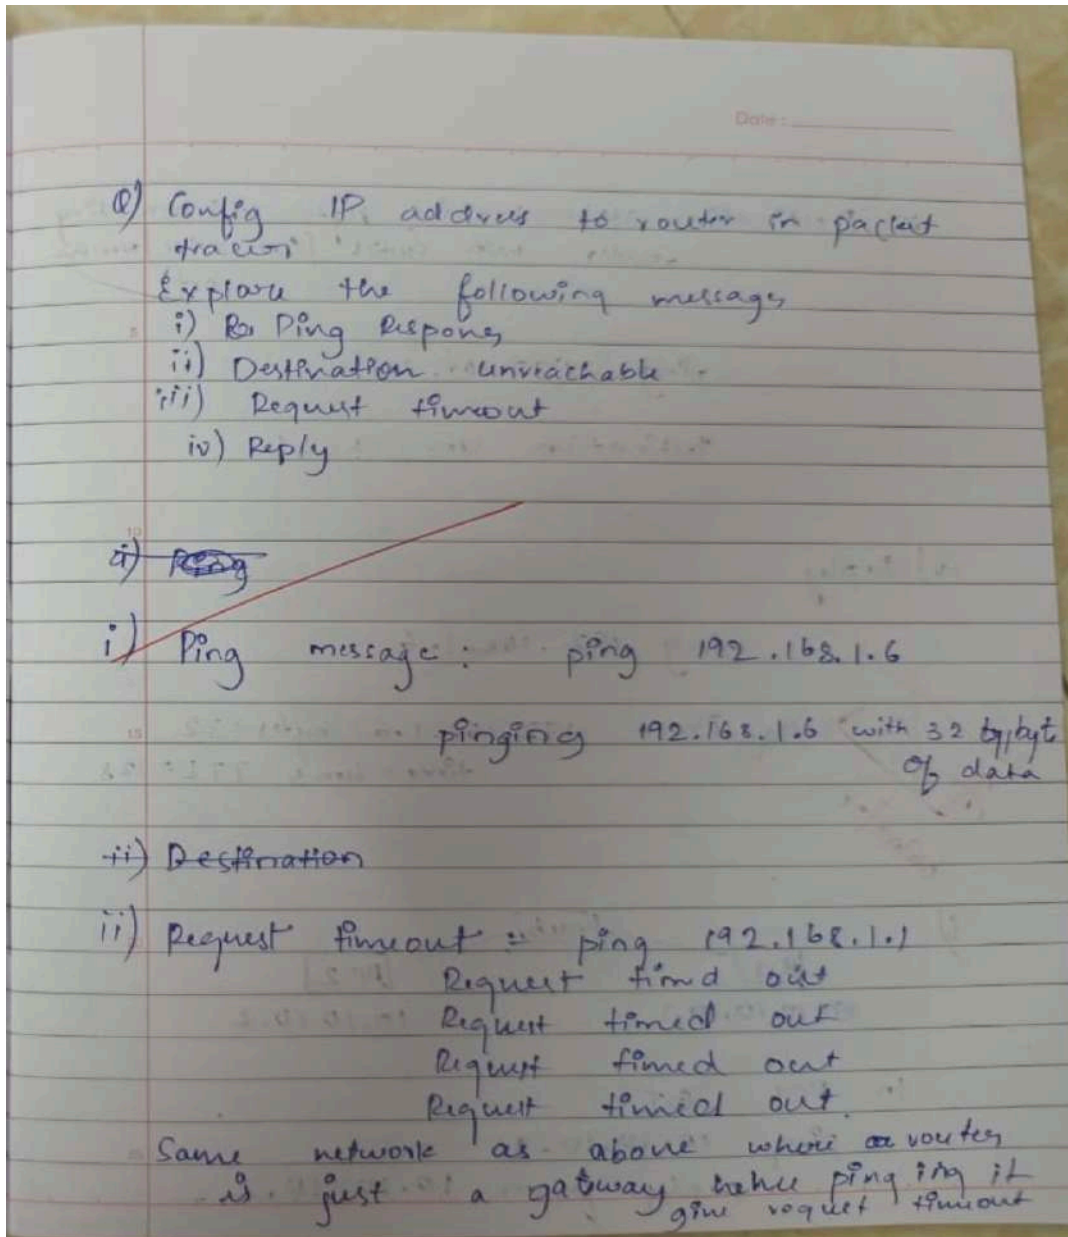 Date :
Q) Config IP address to router in packet
tracer
Explore the following messages
i) Ping Respons
ii) Destination unreachable
iii) Request timeout
iv) Reply
i) Ping
i) Ping message : ping 192.168.1.6
pinging 192.168.1.6 with 32 byte
of data
ii) Destination
ii) Request timeout = ping 192.168.1.1
Request timd out
Request timed out
Request timed out
Request timed out.
Same network as above where router
is just a gatway hence pinging it
give requet timeout